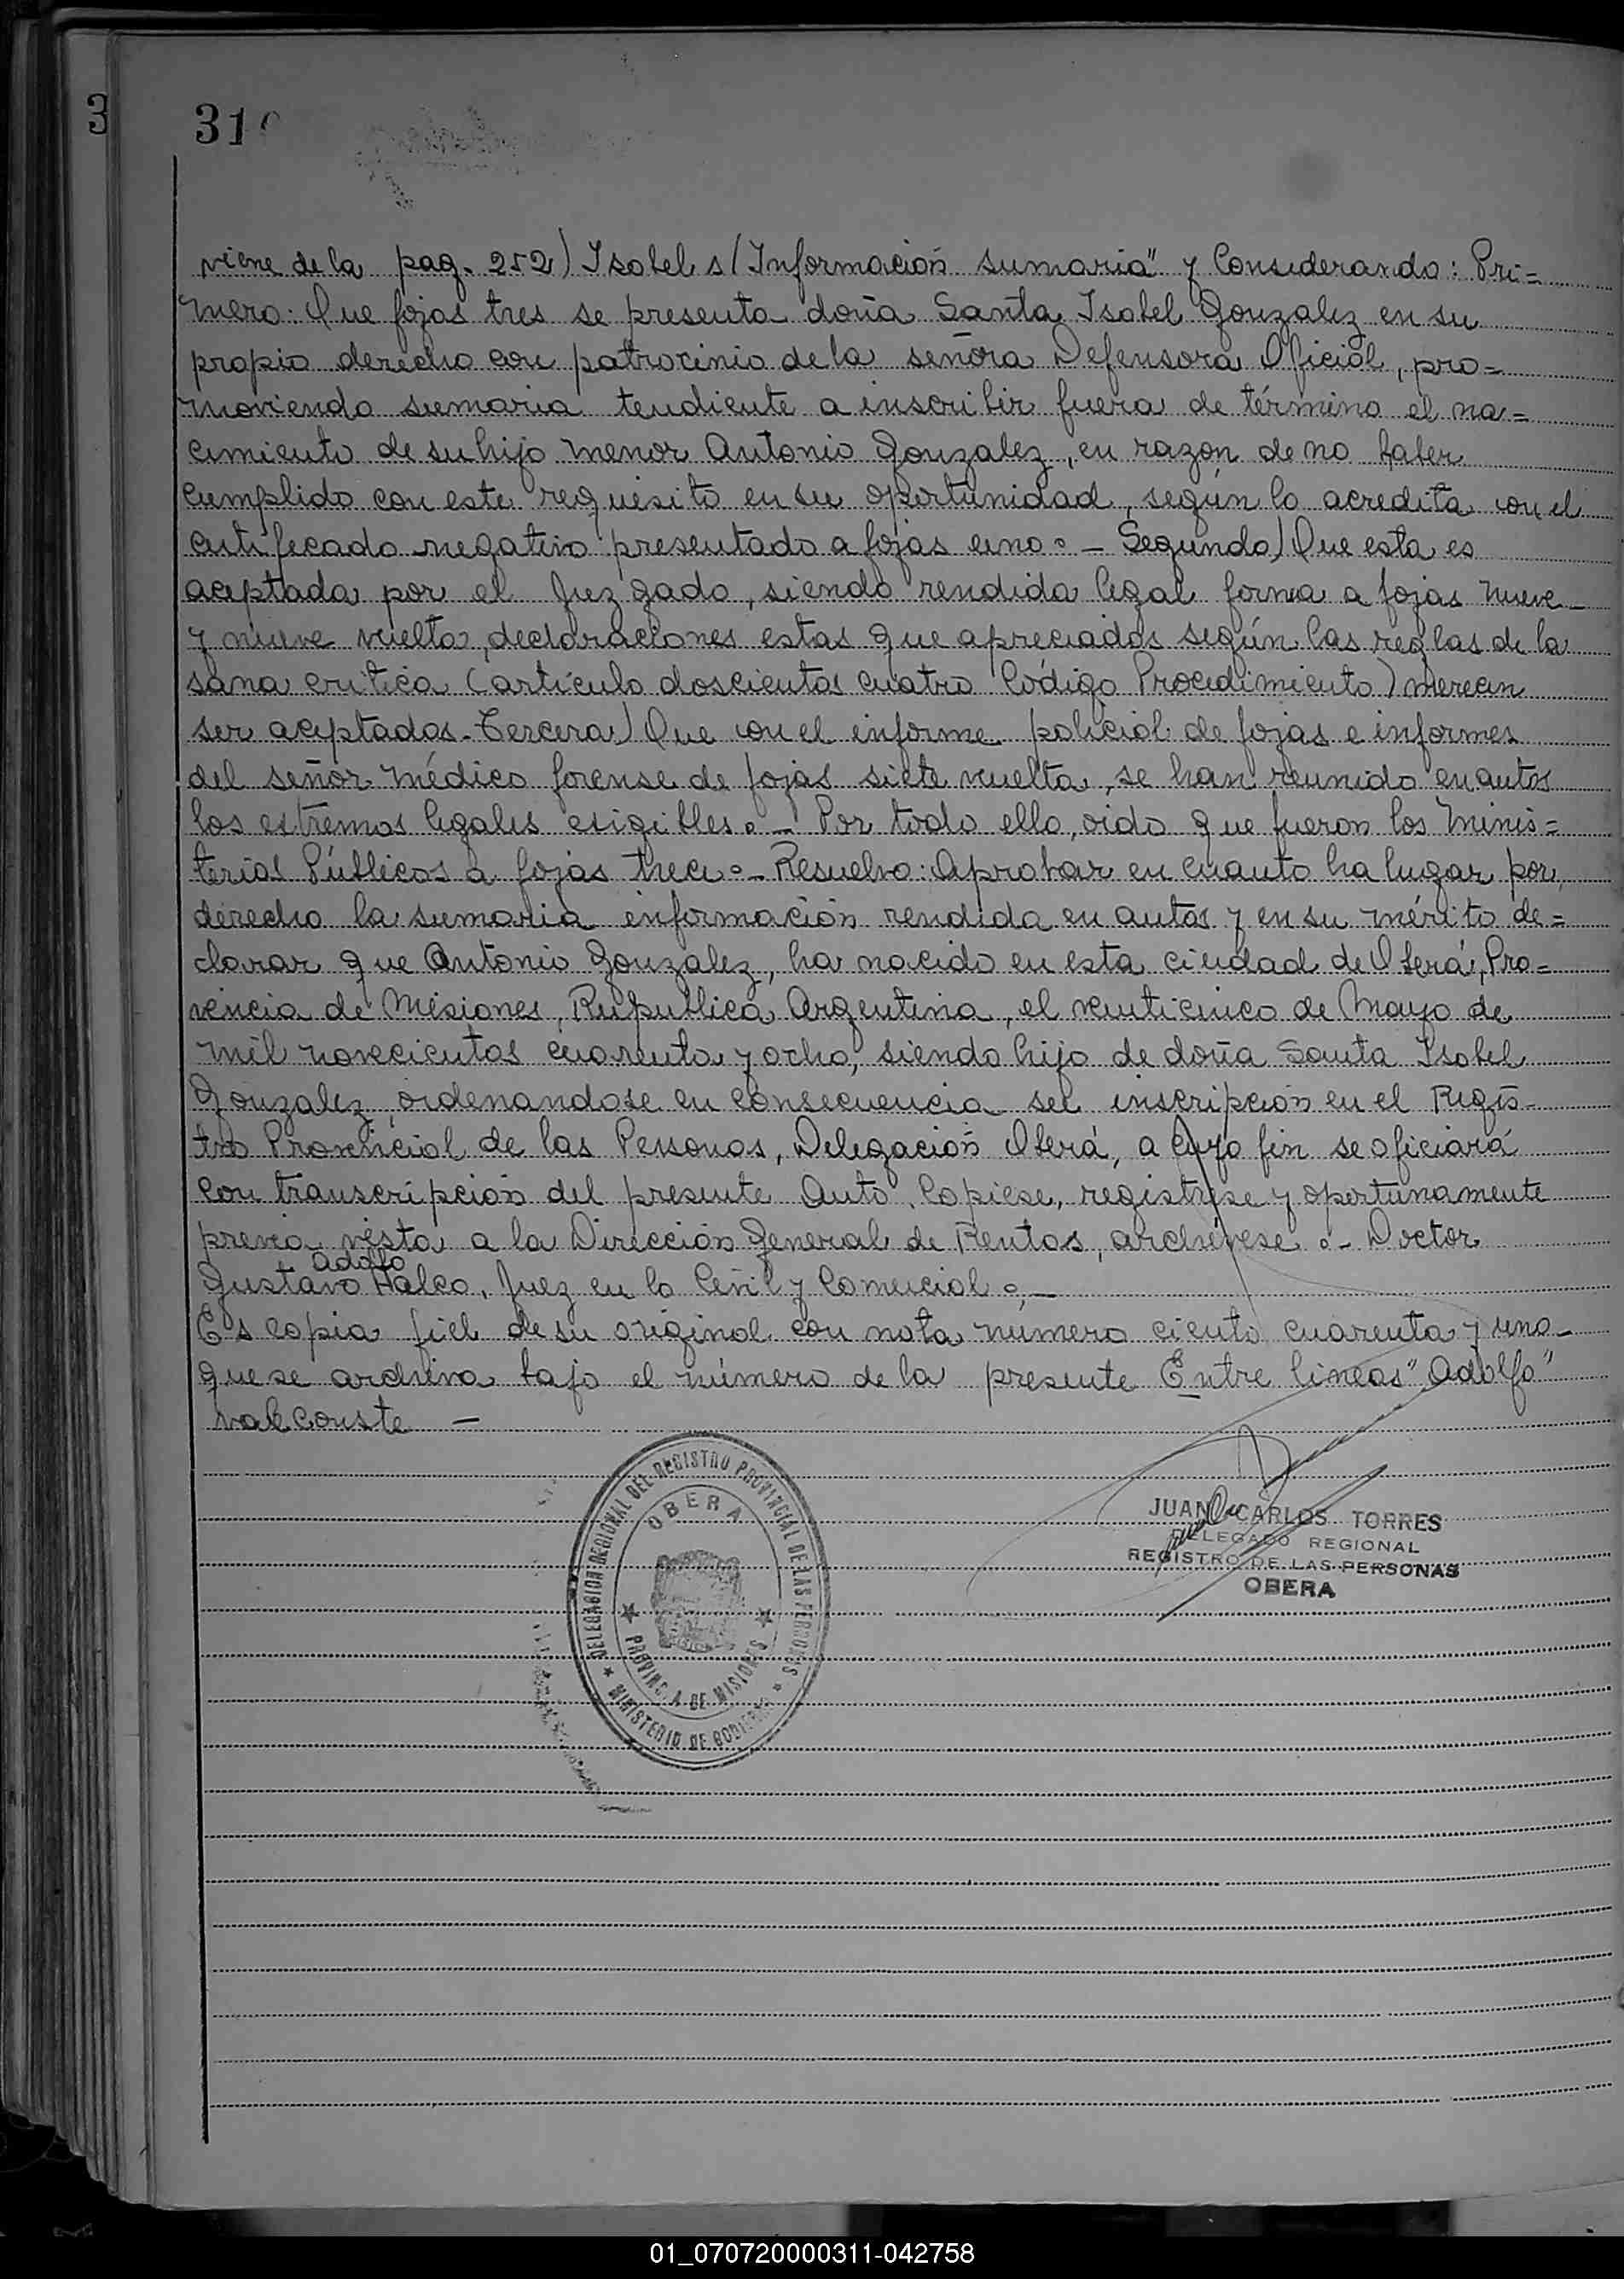 3
31
viene de la pag. 252) Isabel s/Información sumaria" y Considerando: Pri=
mero: Que fojas tres se presenta doña Santa Isabel Gonzalez en su
propio derecho con patrocinio de la señora Defensora Oficial, pro=
moviendo sumaria tendiente a inscribir fuera de término el na=
cimiento de su hijo menor Antonio Gonzalez, en razon de no haber
cumplido con este requisito en su oportunidad, según lo acredita con el
certificado negativo presentado a fojas uno.- Segundo) Que esta es
aceptada por el Juzgado, siendo rendida legal forma a fojas nueve
y nueve vuelta, declaraciones estas que apreciadas según las reglas de la
sana critica (artículo doscientos cuatro Código Procedimiento) merecen
ser aceptados.- Tercera) Que con el informe policial de fojas e informes
del señor médico forense de fojas siete vuelta, se han reunido en autos
los estremos legales exigibles.- Por todo ello, oido que fueron los Minis=
terios Públicos a fojas trece.- Resuelvo: Aprobar en cuanto ha lugar por
derecho la sumaria información rendida en autos y en su mérito de=
clarar que Antonio Gonzalez, ha nacido en esta ciudad de Oberá, Pro=
vincia de Misiones, República Argentina, el veinticinco de Mayo de
mil novecientos cuarenta y ocho, siendo hijo de doña Santa Isabel
Gonzalez, ordenandose en consecuencia su inscripción en el Regis-
tro Provincial de las Personas, Delegación Oberá, a cuyo fin se oficiará
con transcripción del presente Auto. Copiese, registrese y oportunamente
previa vista a la Dirección General de Rentas, archívese.- Doctor
Adolfo
Gustavo Halco, Juez en lo Civil y Comercial.-
Es copia fiel de su original con nota número ciento cuarenta y uno-
que se archiva bajo el número de la presente Entre lineas "Adolfo"
vale conste -
DELEGACION REGIONAL DEL REGISTRO PROVINCIAL DE LAS PERSONAS
OBERA
PROVINCIA DE MISIONES
MINISTERIO DE GOBIERNO
JUAN CARLOS TORRES
DELEGADO REGIONAL
REGISTRO DE LAS PERSONAS
OBERA
01_070720000311-042758